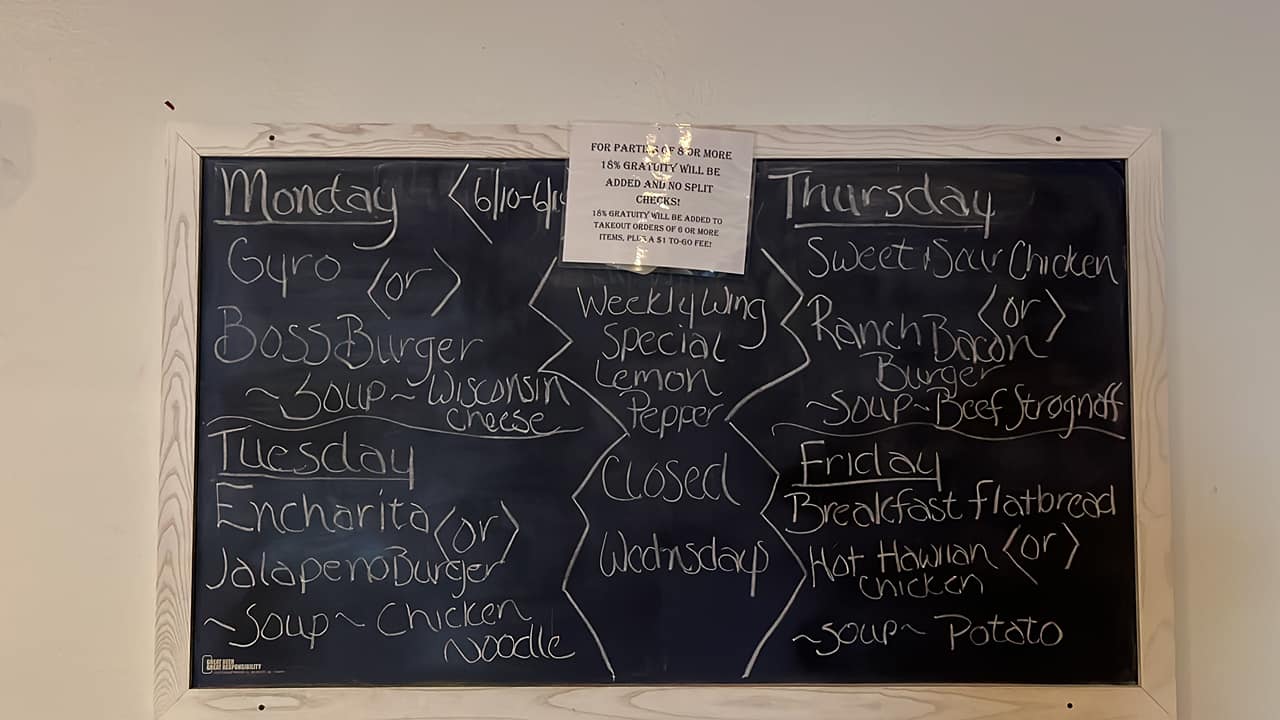 FOR PARTIES OF 8 OR MORE
18% GRATUITY WILL BE
ADDED AND NO SPLIT
CHECKS!
18% GRATUITY WILL BE ADDED TO
TAKEOUT ORDERS OF 6 OR MORE
ITEMS, PLUS A $1 TO-GO FEE!
Monday <6/10-6/1
Gyro <or>
Boss Burger
~Soup~ Wisconsin
Cheese
Tuesday
Encharita <or>
Jalapeno Burger
~Soup~ Chicken
Noodle
Weekly Wing
Special
Lemon
Pepper
Closed
Wednsdays
Thursday
Sweet & Sour Chicken
<or>
Ranch Bacon
Burger
~Soup~ Beef Strognoff
Friday
Breakfast flatbread
<or>
Hot Hawiian
Chicken
~Soup~ Potato
GREAT BEER
GREAT RESPONSIBILITY